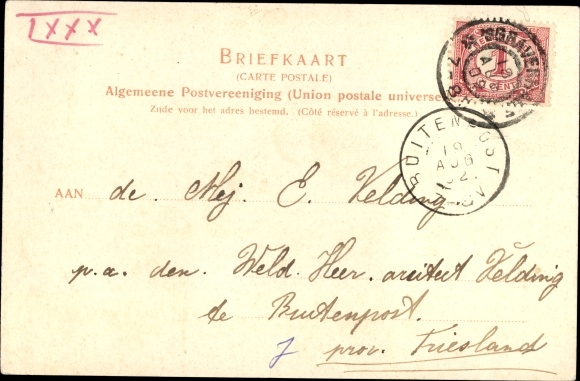 1XXX
BRIEFKAART
(CARTE POSTALE)
Algemeene Postvereeniging (Union postale universe
Zijde voor het adres bestemd. (Côté réservé à l'adresse.)
1
CENT
BUITENPOST
19
AUG
02
AAN de. Mej. E. Velding
p.a. den. Weld. Heer. arsitect Velding
te Buitenpost.
prov. Friesland